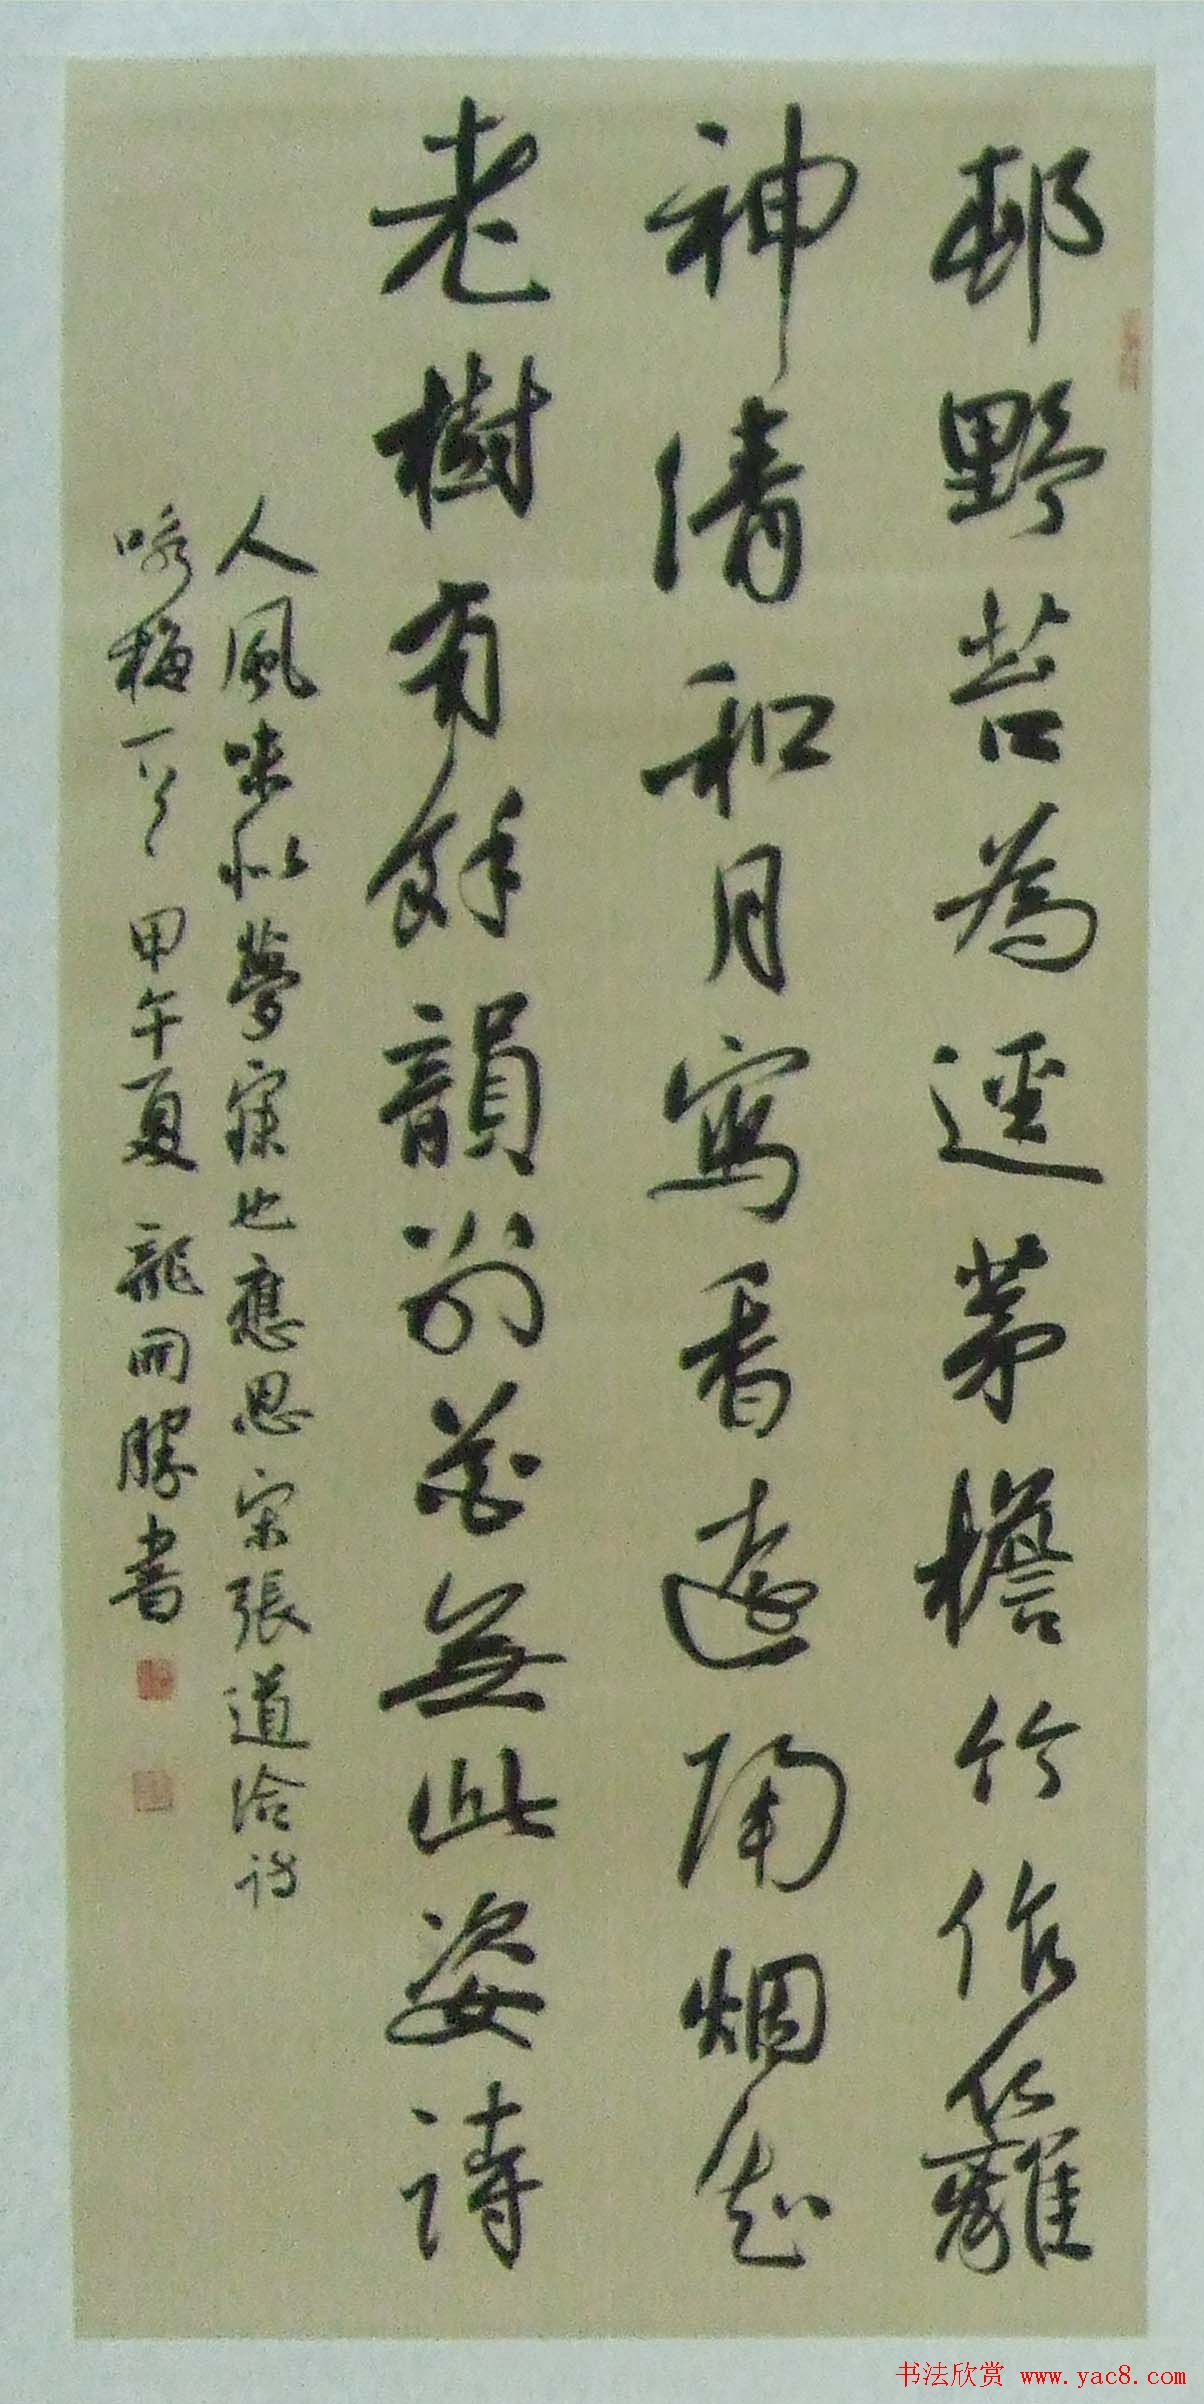 邨野苔為逕茅檐竹作籬
神清和月寫香遠隔烟知
老樹有餘韻別花無此姿詩
人風味似夢寐也應思宋張道洽詩
咏梅一首甲午夏龍開勝書
书法欣赏 www.yac8.com